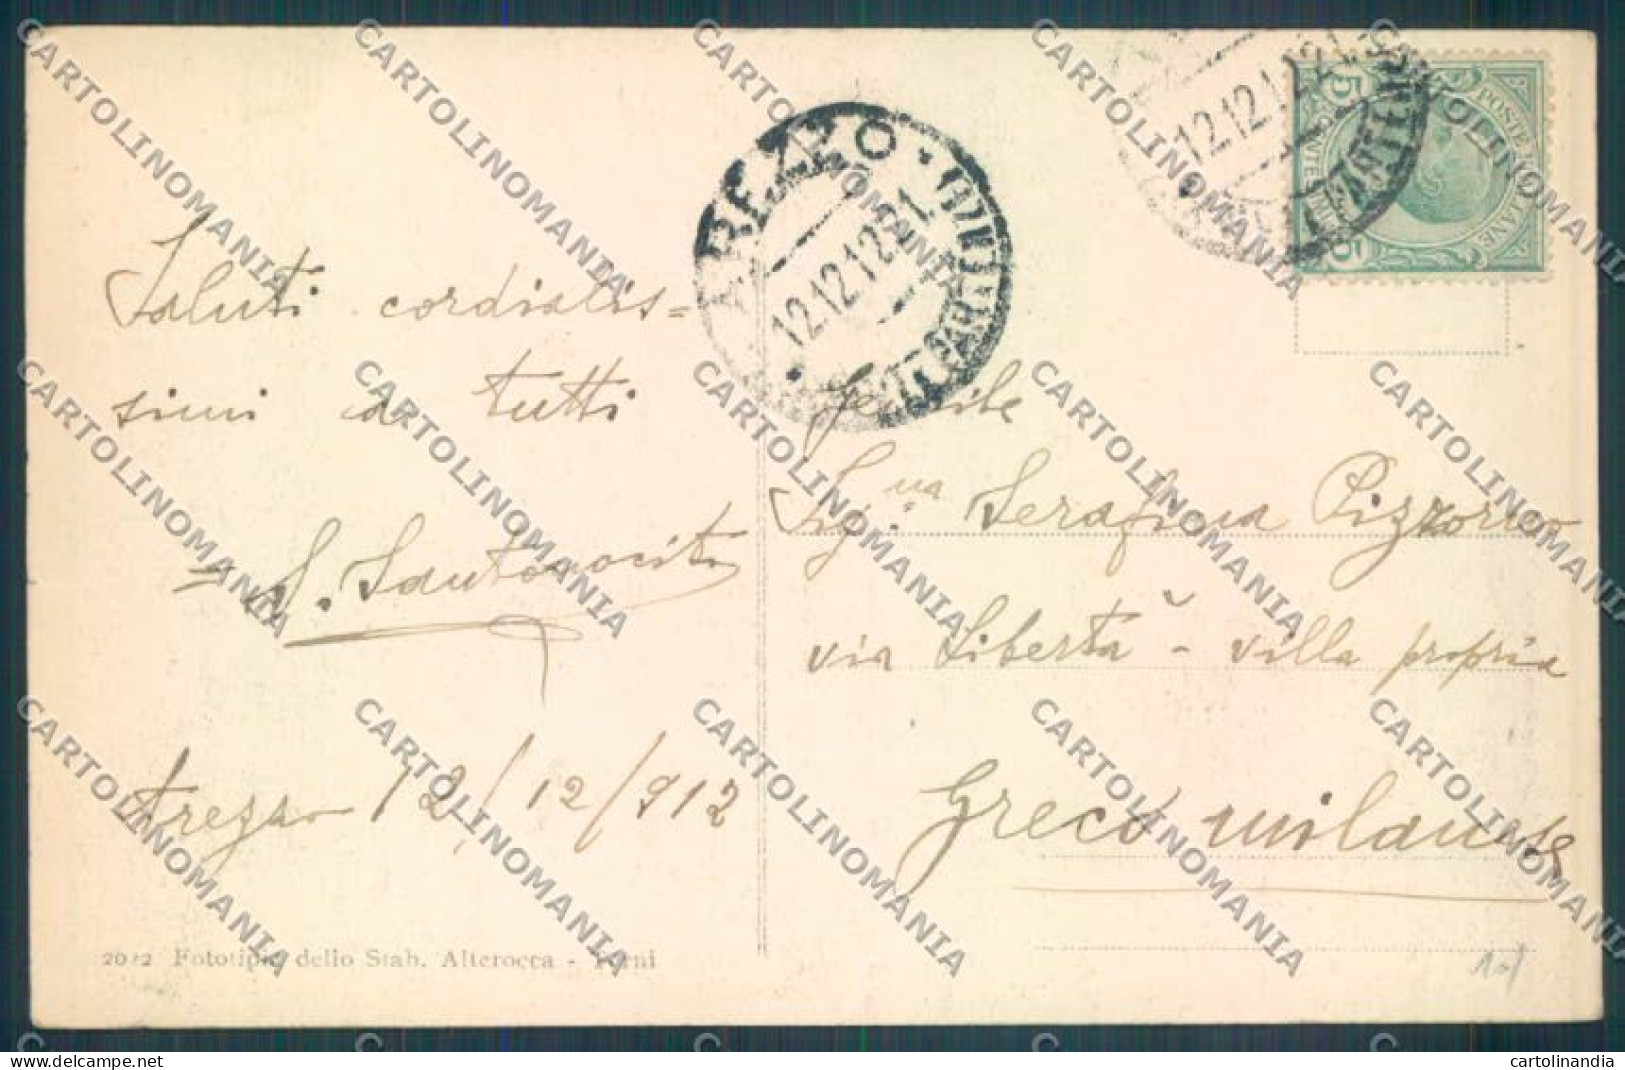 Saluti cordialis=
simi a tutti
S. Santonocito
Arezzo 12/12/912
2012 Fototipia dello Stab. Alterocca - Terni
AREZZO
12.12.12
PARTENZA
12.12.12
POSTE ITALIANE
5 CENTESIMI 5
Gentile
Sig.na Serafina Pizzorno
via Libertà - villa propria
Greco milanese
CARTOLINOMANIA
cartolinandia